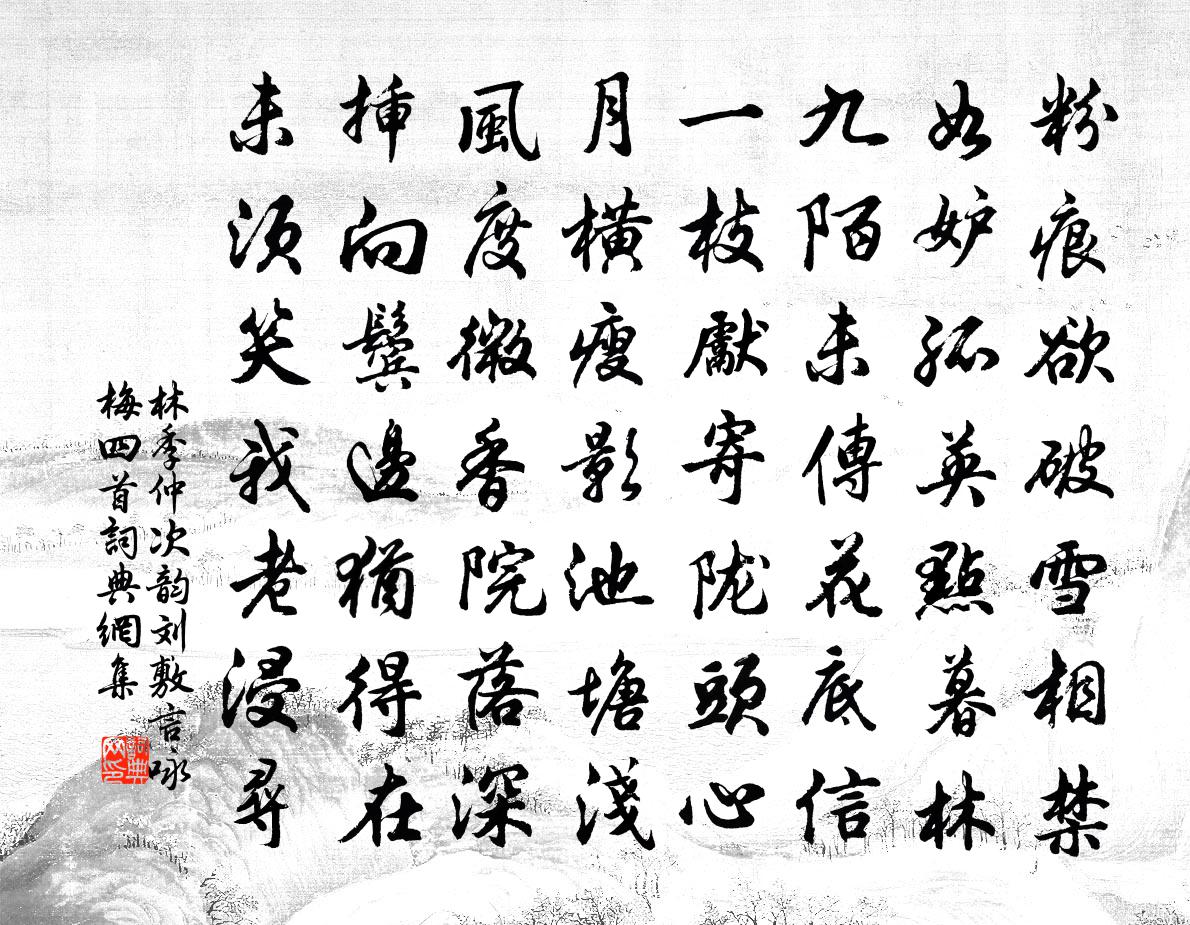 粉痕欲破雪相禁
如妒孤英點暮林
九陌未傳花底信
一枝獻寄陇頭心
月橫瘦影池塘淺
風度微香院落深
插向鬢邊猶得在
未須笑我老浸尋
林季仲次韵刘敷言咏
梅四首詞典網集